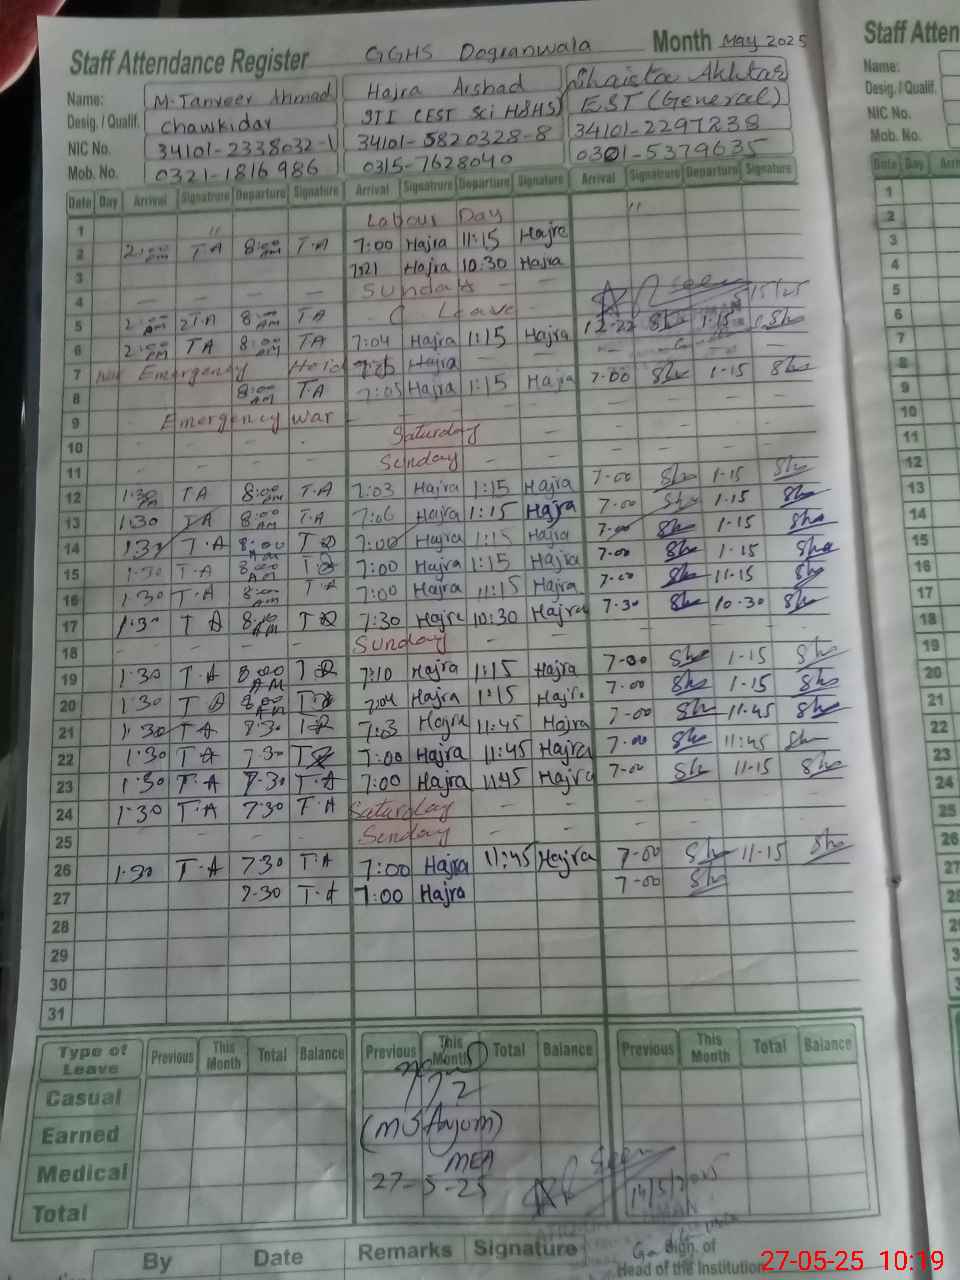 Staff Attendance Register GGHS Dogranwala Month May 2025
Name: M. Tanveer Ahmad Hajra Arshad Shaista Akhtar
Desig. / Qualif. Chawkidar EST (General)
NIC No. 34101-2338032-1 34101-5820328-8 34101-2297238
Mob. No. 0321-1816986 0315-7628040 0301-5379635
Date Day Arrival Signatrure Departure Signature Arrival Signatrure Departure Signature Arrival Signatrure Departure Signature
1 Labour Day
2 2:00 T.A 8:00 AM T.A 7:00 Hajra 11:15 Hajra
3 Hajra 10:30 Hajra
4 — — — — Sunday
5 2:00 AM T.A 8:00 AM T.A Leave seen
6 2:00 AM T.A 8:00 AM T.A 7:04 Hajra 1:15 Hajra 1-15 Sha
7 Emergency Hajra
8 8:00 AM T.A 7:05 Hajra 1:15 Hajra 7-00 Sha 1-15 Sha
9 Emergency war
10 Saturday
11 Sunday
12 1:30 T.A 8:00 AM T.A 7:03 Hajra 1:15 Hajra 7-00 Sha 1-15 Sha
13 1:30 T.A 8:00 AM T.A 7:06 Hajra 1:15 Hajra 7-00 Sha 1-15 Sha
14 1:30 T.A 8:00 AM T.A 7:00 Hajra 1:15 Hajra 7-00 Sha 1-15 Sha
15 1:30 T.A 8:00 AM T.A 7:00 Hajra 1:15 Hajra 7-00 Sha 1-15 Sha
16 1:30 T.A 8:00 AM T.A 7:00 Hajra 11:15 Hajra 7-00 Sha 11-15 Sha
17 1:30 T.A T.A 7:30 Hajra 10:30 Hajra 7-30 Sha 10-30 Sha
18 Sunday
19 1:30 T.A 8:00 AM T.A 7:10 Hajra 1:15 Hajra 7-00 Sha 1-15 Sha
20 1:30 T.A 8:00 AM T.A 7:04 Hajra 1:15 Hajra 7-00 Sha 1-15 Sha
21 1:30 T.A T.A 7:03 Hajra 11:45 Hajra 7-00 Sha 11-45 Sha
22 1:30 T.A 7:30 T.A 7:00 Hajra 11:45 Hajra 7-00 Sha 11:45 Sha
23 1:30 T.A 7:30 T.A 7:00 Hajra 11:45 Hajra 7-00 Sha 11-15 Sha
24 1:30 T.A 7:30 T.A Saturday
25 Sunday
26 1:30 T.A 7:30 T.A 7:00 Hajra 11:45 Hajra 7-00 Sha 11-15 Sha
27 7:30 T.A 7:00 Hajra 7-00 Sha
28
29
30
31
Type of Leave Previous This Month Total Balance Previous This Month Total Balance Previous This Month Total Balance
Casual
Earned
Medical
Total
MEA
27-5-25
seen
14/5/2025
By Date Remarks Signature Sign. of
Head of the Institution
27-05-25 10:19
Staff Atten
Name:
Desig. / Qualif
NIC No.
Mob. No.
Date Day
1
2
3
4
5
6
7
8
9
10
11
12
13
14
15
16
17
18
19
20
21
22
23
24
25
26
27